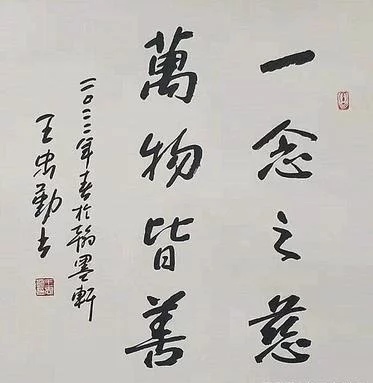 一念之慈
萬物皆善
二〇二二年春於翰墨軒
王忠勤書